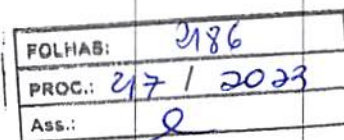 FOLHAS: 2186
PROC.: 217 / 2023
Ass.: